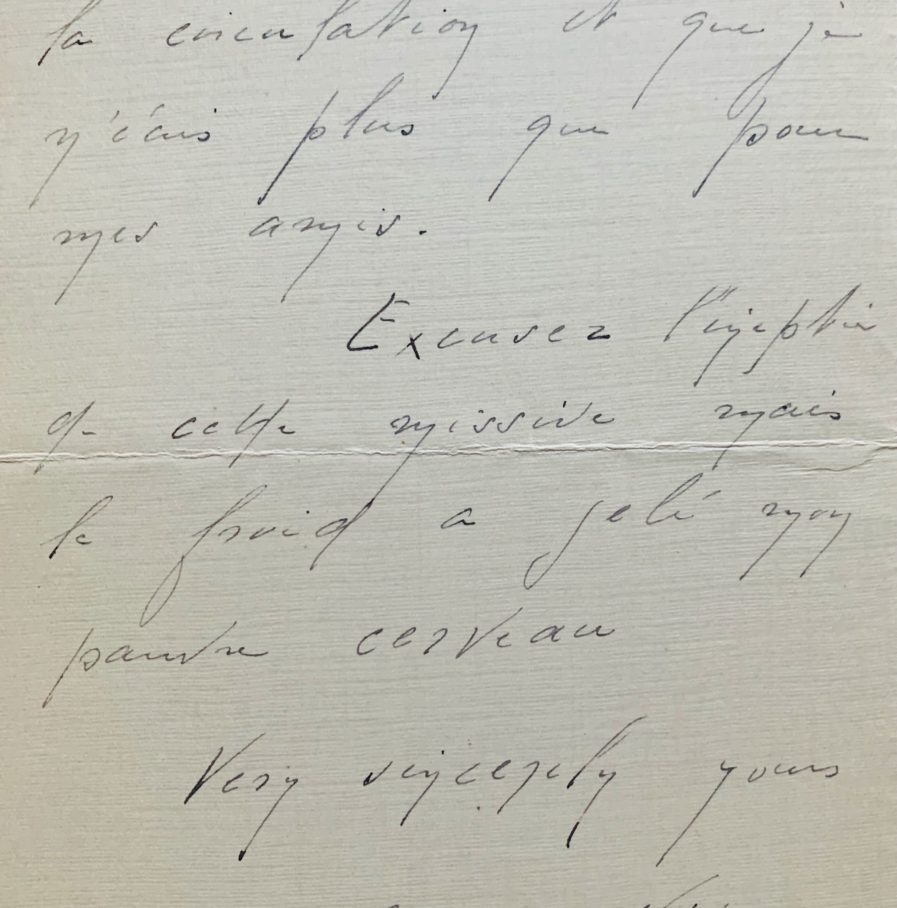 la circulation et que je
n'étais plus que pour
mes amis.
Excusez l'ineptie
de cette missive mais
le froid a gelé mon
pauvre cerveau
Very sincerely yours